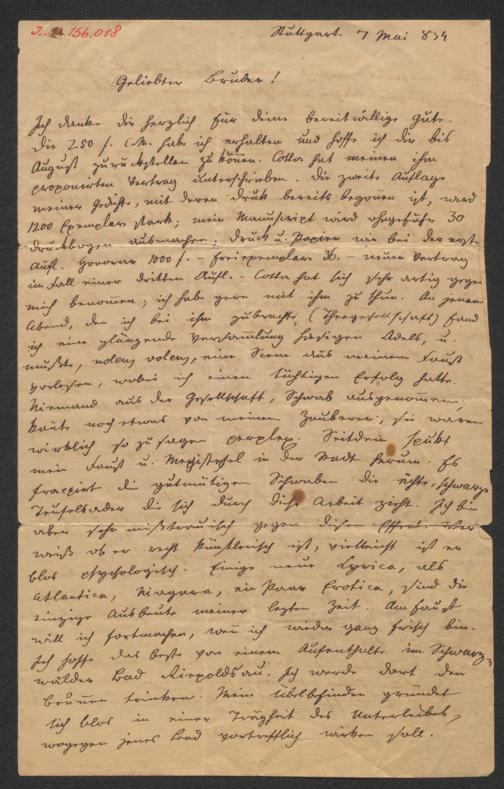 J. N. 156.018
Stuttgart 7 Mai 834
Geliebter Bruder!
Ich danke dir herzlich für deine bereitwillige Güte.
Die 250 f. C.M. habe ich erhalten und hoffe ich dir bis
August zurückstellen zu können. Cotta hat meinen ihm
proponirten Vertrag unterschrieben. Die zweite Auflage
meiner Gedichte, mit deren Druk bereits begonnen ist, wird
1200 Exemplare stark; mein Manuskript wird ohngefähr 30
Drukbogen ausmachen; Druk u. Papier wie bei der erst
Aufl. Honorar 1000 f. – Freiexemplare 36. – neuer Vertrag
im Fall einer dritten Aufl. – Cotta hat sich sehr artig gegen
mich benommen; ich habe gern mit ihm zu thun. An jenem
Abend, den ich bei ihm zubrachte, (Theegesellschaft) fand
ich eine glänzende Versammlung hiesigen Adels, u.
mußte, nolens volens, eine Scene aus meinem Faust
vorlesen, wobei ich einen tüchtigen Erfolg hatte.
Niemand aus der Gesellschaft, Schwab ausgenommen,
kante noch etwas von meinen Zauberei, sie waren
wirklich so zu sagen perplex. Seitdem spukt
mein Faust u. Mephistophel in der Stadt herum. Es
frappirt die gutmütigen Schwaben die ächte, schwarze
Teufelsader die sich durch diese Arbeit zieht. Ich bin
aber sehr mißtrauisch gegen diesen Effect. Wer
weiß ob er recht künstlerisch ist, vielleicht ist er
blos psychologisch. Einige neue Lyrica, als
Atlantica, Niagara, ein Paar Erotica, sind die
einzige Ausbeute meiner lezten Zeit. Am Faust
will ich fortmachen, wenn ich wieder ganz frisch bin.
Ich hoffe das beste von einem Aufenthalte im Schwarz-
wälder Bad Rippoldsau. Ich werde dort den
Brunnen trinken. Mein Übelbefinden gründet
sich blos in einer Trägheit des Unterleibes,
wogegen jenes Bad vortrefflich wirken soll.